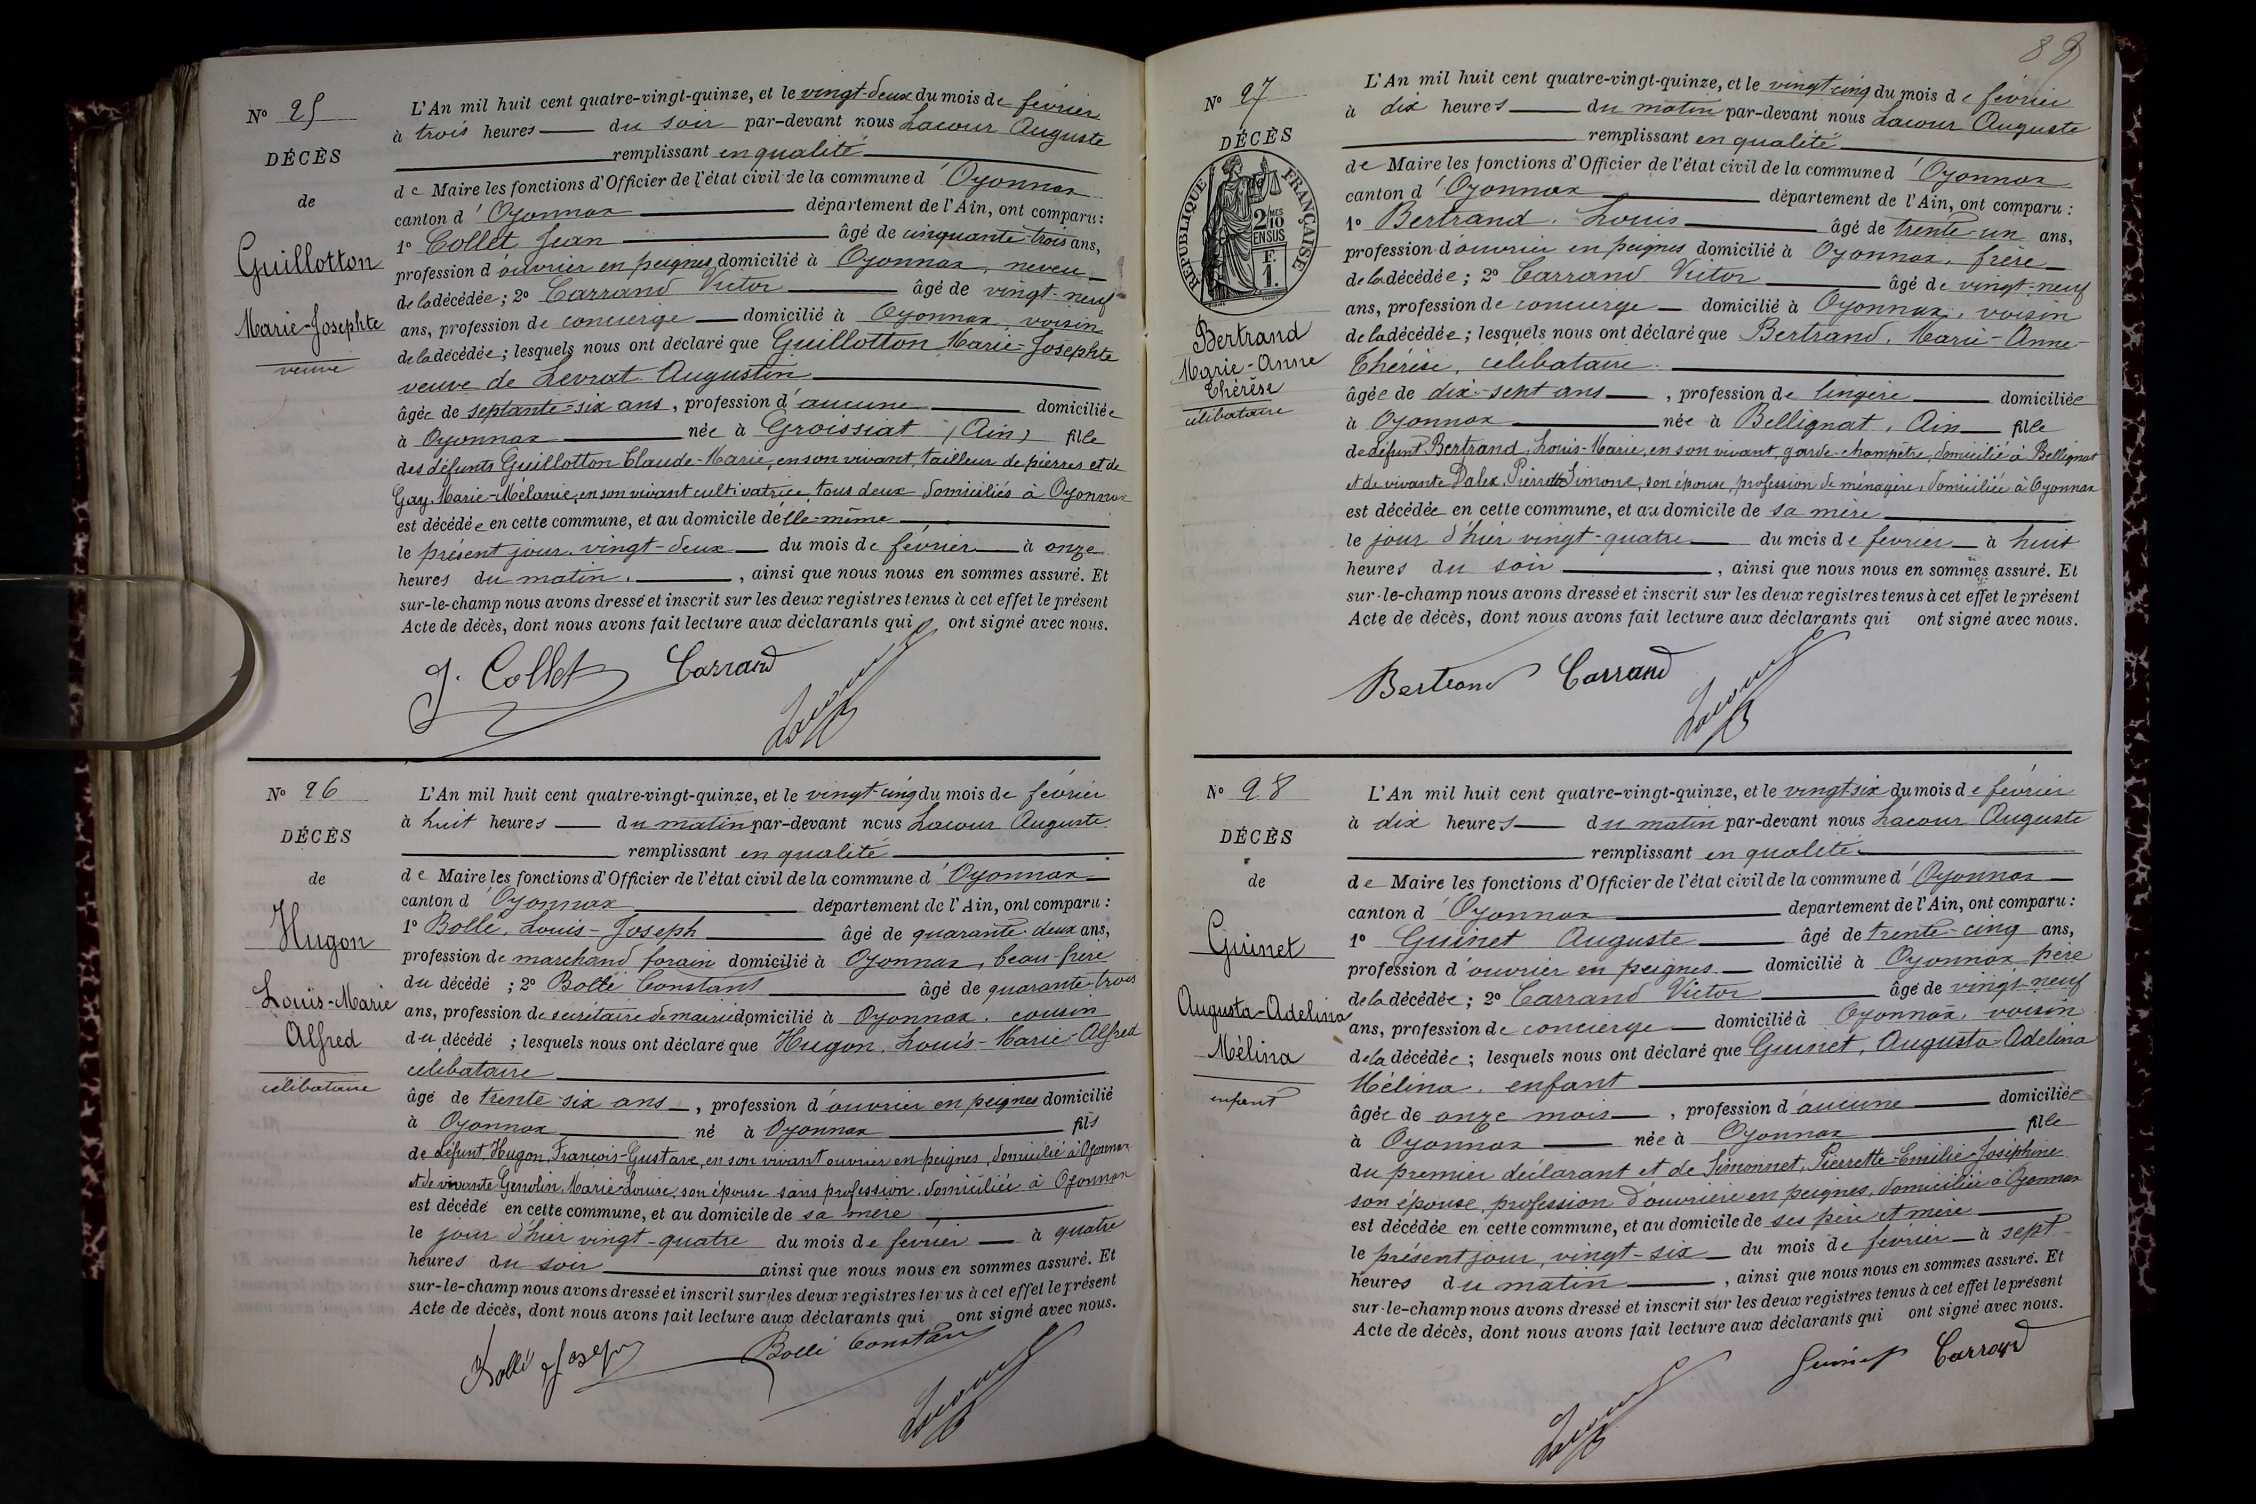 Nº 25
DÉCÈS
de
Guillotton
Marie-Josephte
veuve
L'An mil huit cent quatre-vingt-quinze, et le vingt-deux du mois de février
à trois heures du soir par-devant nous Lacour Auguste
remplissant en qualité
de Maire les fonctions d'Officier de l'état civil de la commune d'Oyonnax
canton d'Oyonnax département de l'Ain, ont comparu :
1º Collet Jean âgé de cinquante-trois ans,
profession d'ouvrier en peignes domicilié à Oyonnax, neveu
de la décédée ; 2º Carrand Victor âgé de vingt-neuf
ans, profession de concierge domicilié à Oyonnax, voisin
de la décédée ; lesquels nous ont déclaré que Guillotton Marie-Josephte
veuve de Levrat Augustin
âgée de septante-six ans, profession d'aucune domiciliée
à Oyonnax née à Groissiat (Ain) fille
des défunts Guillotton Claude-Marie, en son vivant, tailleur de pierres et de
Gay Marie-Mélanie, en son vivant cultivatrice, tous deux domiciliés à Oyonnax
est décédée en cette commune, et au domicile d'elle-même
le présent jour, vingt-deux du mois de février à onze
heures du matin, ainsi que nous nous en sommes assuré. Et
sur-le-champ nous avons dressé et inscrit sur les deux registres tenus à cet effet le présent
Acte de décès, dont nous avons fait lecture aux déclarants qui ont signé avec nous.
J. Collet Carrand Lacour
Nº 26
DÉCÈS
de
Hugon
Louis-Marie
Alfred
célibataire
L'An mil huit cent quatre-vingt-quinze, et le vingt-cinq du mois de février
à huit heures du matin par-devant nous Lacour Auguste
remplissant en qualité
de Maire les fonctions d'Officier de l'état civil de la commune d'Oyonnax
canton d'Oyonnax département de l'Ain, ont comparu :
1º Bollé, Louis-Joseph âgé de quarante-deux ans,
profession de marchand forain domicilié à Oyonnax, beau-frère
du décédé ; 2º Bollé Constant âgé de quarante-trois
ans, profession de secrétaire de mairie domicilié à Oyonnax, cousin
du décédé ; lesquels nous ont déclaré que Hugon, Louis-Marie-Alfred
célibataire
âgé de trente-six ans, profession d'ouvrier en peignes domicilié
à Oyonnax né à Oyonnax fils
de défunt Hugon, François-Gustave, en son vivant ouvrier en peignes, domicilié à Oyonnax
et de vivante Genolin, Marie-Louise, son épouse sans profession, domiciliée à Oyonnax
est décédé en cette commune, et au domicile de sa mère
le jour d'hier vingt-quatre du mois de février à quatre
heures du soir ainsi que nous nous en sommes assuré. Et
sur-le-champ nous avons dressé et inscrit sur les deux registres tenus à cet effet le présent
Acte de décès, dont nous avons fait lecture aux déclarants qui ont signé avec nous.
Bollé Joseph Bollé Constant Lacour
88
Nº 27
DÉCÈS
RÉPUBLIQUE FRANÇAISE
2/10 MES
EN SUS
F.
1.
Bertrand
Marie-Anne
Thérèse
célibataire
L'An mil huit cent quatre-vingt-quinze, et le vingt-cinq du mois de février
à dix heures du matin par-devant nous Lacour Auguste
remplissant en qualité
de Maire les fonctions d'Officier de l'état civil de la commune d'Oyonnax
canton d'Oyonnax département de l'Ain, ont comparu :
1º Bertrand, Louis âgé de trente-un ans,
profession d'ouvrier en peignes domicilié à Oyonnax, frère
de la décédée ; 2º Carrand Victor âgé de vingt-neuf
ans, profession de concierge domicilié à Oyonnax, voisin
de la décédée ; lesquels nous ont déclaré que Bertrand, Marie-Anne-
Thérèse, célibataire
âgée de dix-sept ans, profession de lingère domiciliée
à Oyonnax née à Bellignat, Ain fille
de défunt Bertrand, Louis-Marie, en son vivant, garde-champêtre, domicilié à Bellignat
et de vivante Dalex, Pierrette Simone, son épouse, profession de ménagère, domiciliée à Oyonnax
est décédée en cette commune, et au domicile de sa mère
le jour d'hier vingt-quatre du mois de février à huit
heures du soir, ainsi que nous nous en sommes assuré. Et
sur-le-champ nous avons dressé et inscrit sur les deux registres tenus à cet effet le présent
Acte de décès, dont nous avons fait lecture aux déclarants qui ont signé avec nous.
Bertrand Carrand Lacour
Nº 28
DÉCÈS
de
Guinet
Augusta-Adelina
Mélina
enfant
L'An mil huit cent quatre-vingt-quinze, et le vingt-six du mois de février
à dix heures du matin par-devant nous Lacour Auguste
remplissant en qualité
de Maire les fonctions d'Officier de l'état civil de la commune d'Oyonnax
canton d'Oyonnax département de l'Ain, ont comparu :
1º Guinet Auguste âgé de trente-cinq ans,
profession d'ouvrier en peignes domicilié à Oyonnax père
de la décédée ; 2º Carrand Victor âgé de vingt-neuf
ans, profession de concierge domicilié à Oyonnax, voisin
de la décédée ; lesquels nous ont déclaré que Guinet, Augusta-Adelina
Mélina, enfant
âgée de onze mois, profession d'aucune domiciliée
à Oyonnax née à Oyonnax fille
du premier déclarant et de Simonnet, Pierrette-Emilie-Joséphine
son épouse, profession d'ouvrière en peignes, domiciliée à Oyonnax
est décédée en cette commune, et au domicile de ses père et mère
le présent jour, vingt-six du mois de février à sept
heures du matin, ainsi que nous nous en sommes assuré. Et
sur-le-champ nous avons dressé et inscrit sur les deux registres tenus à cet effet le présent
Acte de décès, dont nous avons fait lecture aux déclarants qui ont signé avec nous.
Guinet Carrand
Lacour